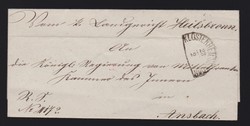 Vom k. Landgericht Heilsbronn.
An
die Königl. Regierung von Mittelfranken
Kammer des Innern
in
R. S.
No. 1192
Ansbach